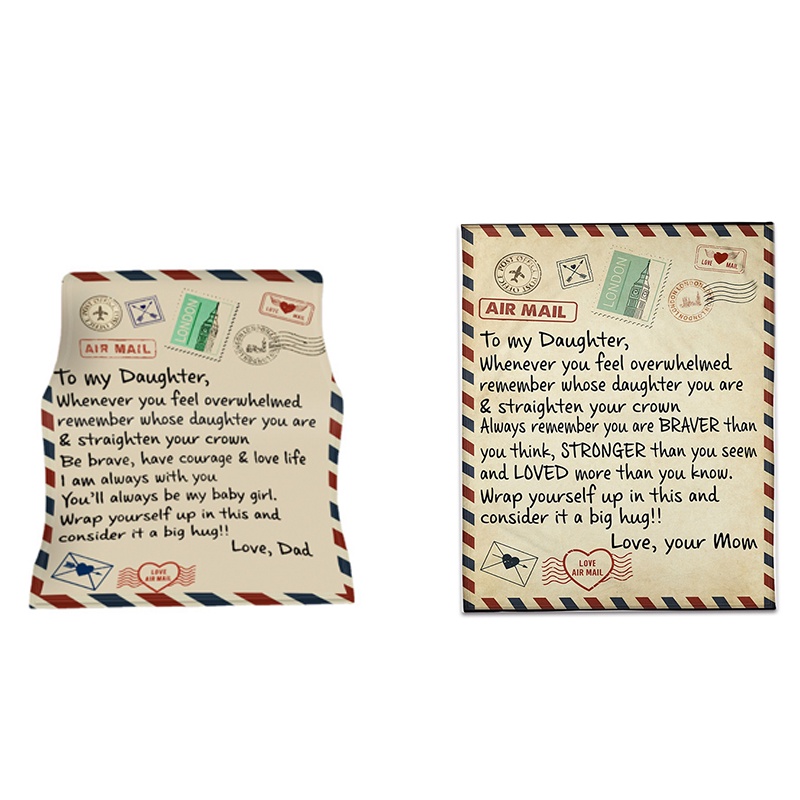 POST OFFICE
POST OFFICE
LONDON
LOVE MAIL
AIR MAIL
To my Daughter,
Whenever you feel overwhelmed
remember whose daughter you are
& straighten your crown
Be brave, have courage & love life
I am always with you
You'll always be my baby girl.
Wrap yourself up in this and
consider it a big hug!!
Love, Dad
LOVE
AIR MAIL
POST OFFICE
POST OFFICE
LONDON
LOVE MAIL
AIR MAIL
To my Daughter,
Whenever you feel overwhelmed
remember whose daughter you are
& straighten your crown
Always remember you are BRAVER than
you think, STRONGER than you seem
and LOVED more than you know.
Wrap yourself up in this and
consider it a big hug!!
Love, your Mom
LOVE
AIR MAIL